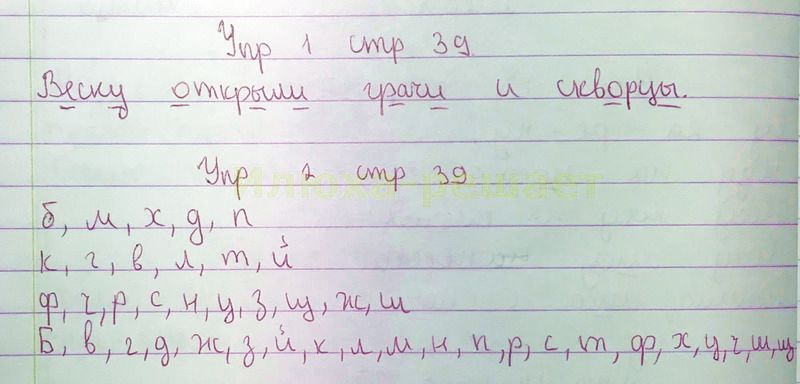 Упр 1 стр 39
Веску открыли грачи и скворцы.
Упр 2 стр 39
Илюха-решает
б, м, х, д, п
к, г, в, л, т, й
ф, ч, р, с, н, ц, з, щ, ж, ш
Б, в, г, д, ж, з, й, к, л, м, н, п, р, с, т, ф, х, ц, ч, ш, щ